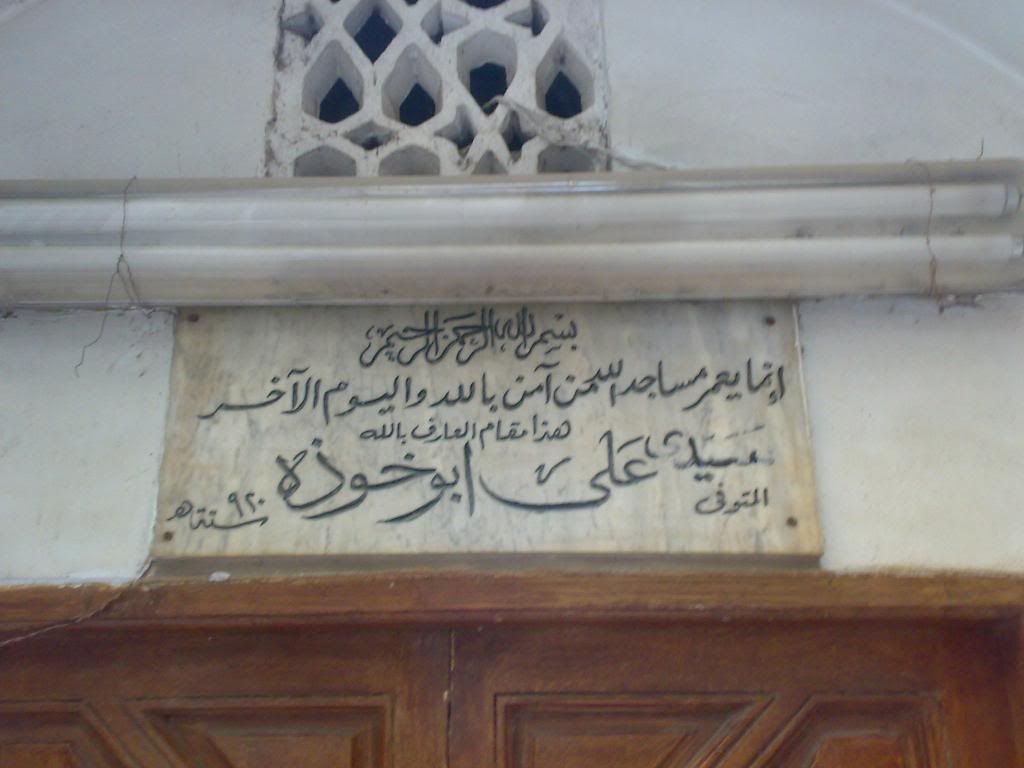 بسم الله الرحمن الرحيم
إنما يعمر مساجد الله من آمن بالله واليوم الآخر
هذا مقام العارف بالله
سيدى على ابو خوذه
المتوفى سنة ٩٢٠ هـ